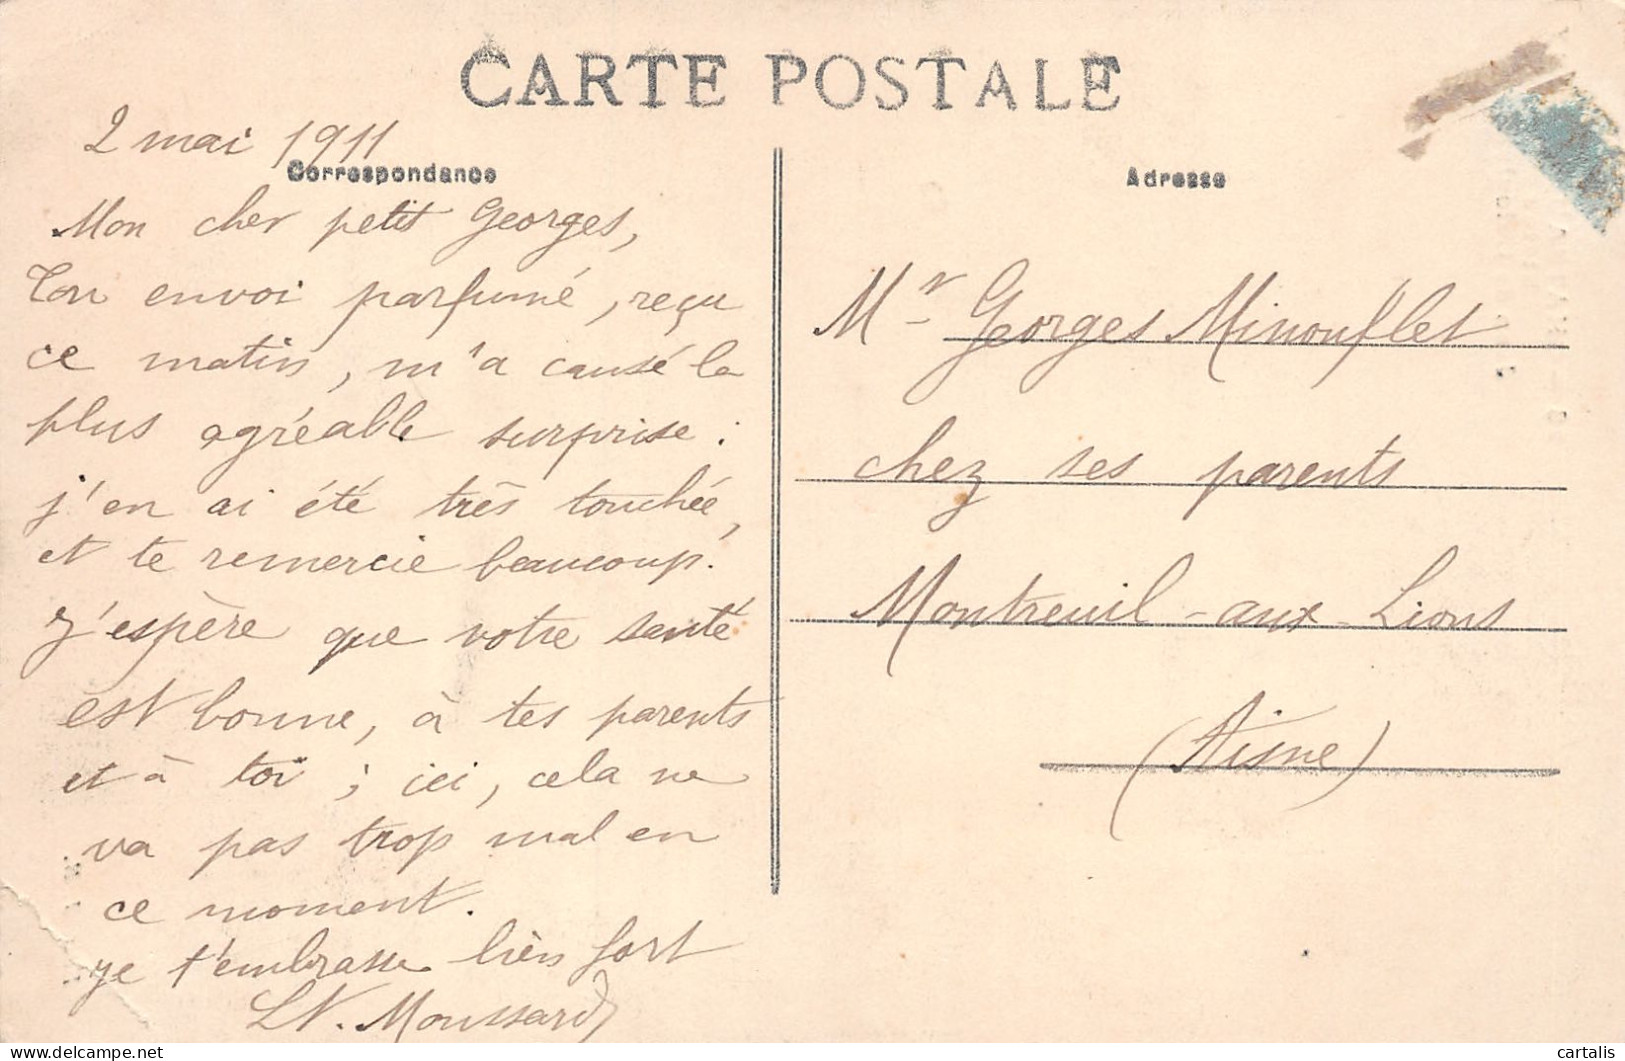 CARTE POSTALE
2 mai 1911
Correspondance
Mon cher petit Georges,
Ton envoi parfumé, reçu
ce matin, m'a causé la
plus agréable surprise :
j'en ai été très touchée,
et te remercie beaucoup.
J'espère que votre santé
est bonne, à tes parents
et à toi ; ici, cela ne
va pas trop mal en
ce moment.
Je t'embrasse bien fort
Moussard
Adresse
Mr Georges Minouflet
chez ses parents
Montreuil-aux-Lions
(Aisne)
cartalis
delcampe.net